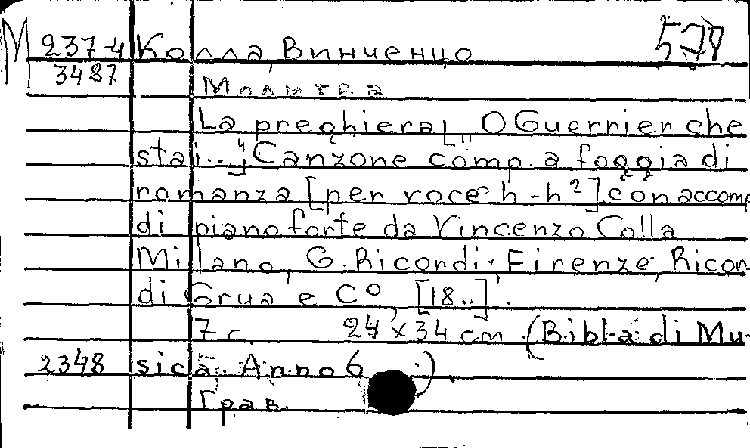 М 237-4 Колла, Винченцо 578
3487 Молитва
La preghiera[ „O Guerrier che
stai..."] Canzone comp. a foggia di
romanza [per voce h - h²] con accomp
di pianoforte da Vincenzo Colla
Milano, G. Ricordi. Firenze, Ricor-
di Grua e Cº, [18..].
7 с. 24 x 34 cm (Bibl-a di Mu-
2348 sica. Anno 6 ).
Грав.